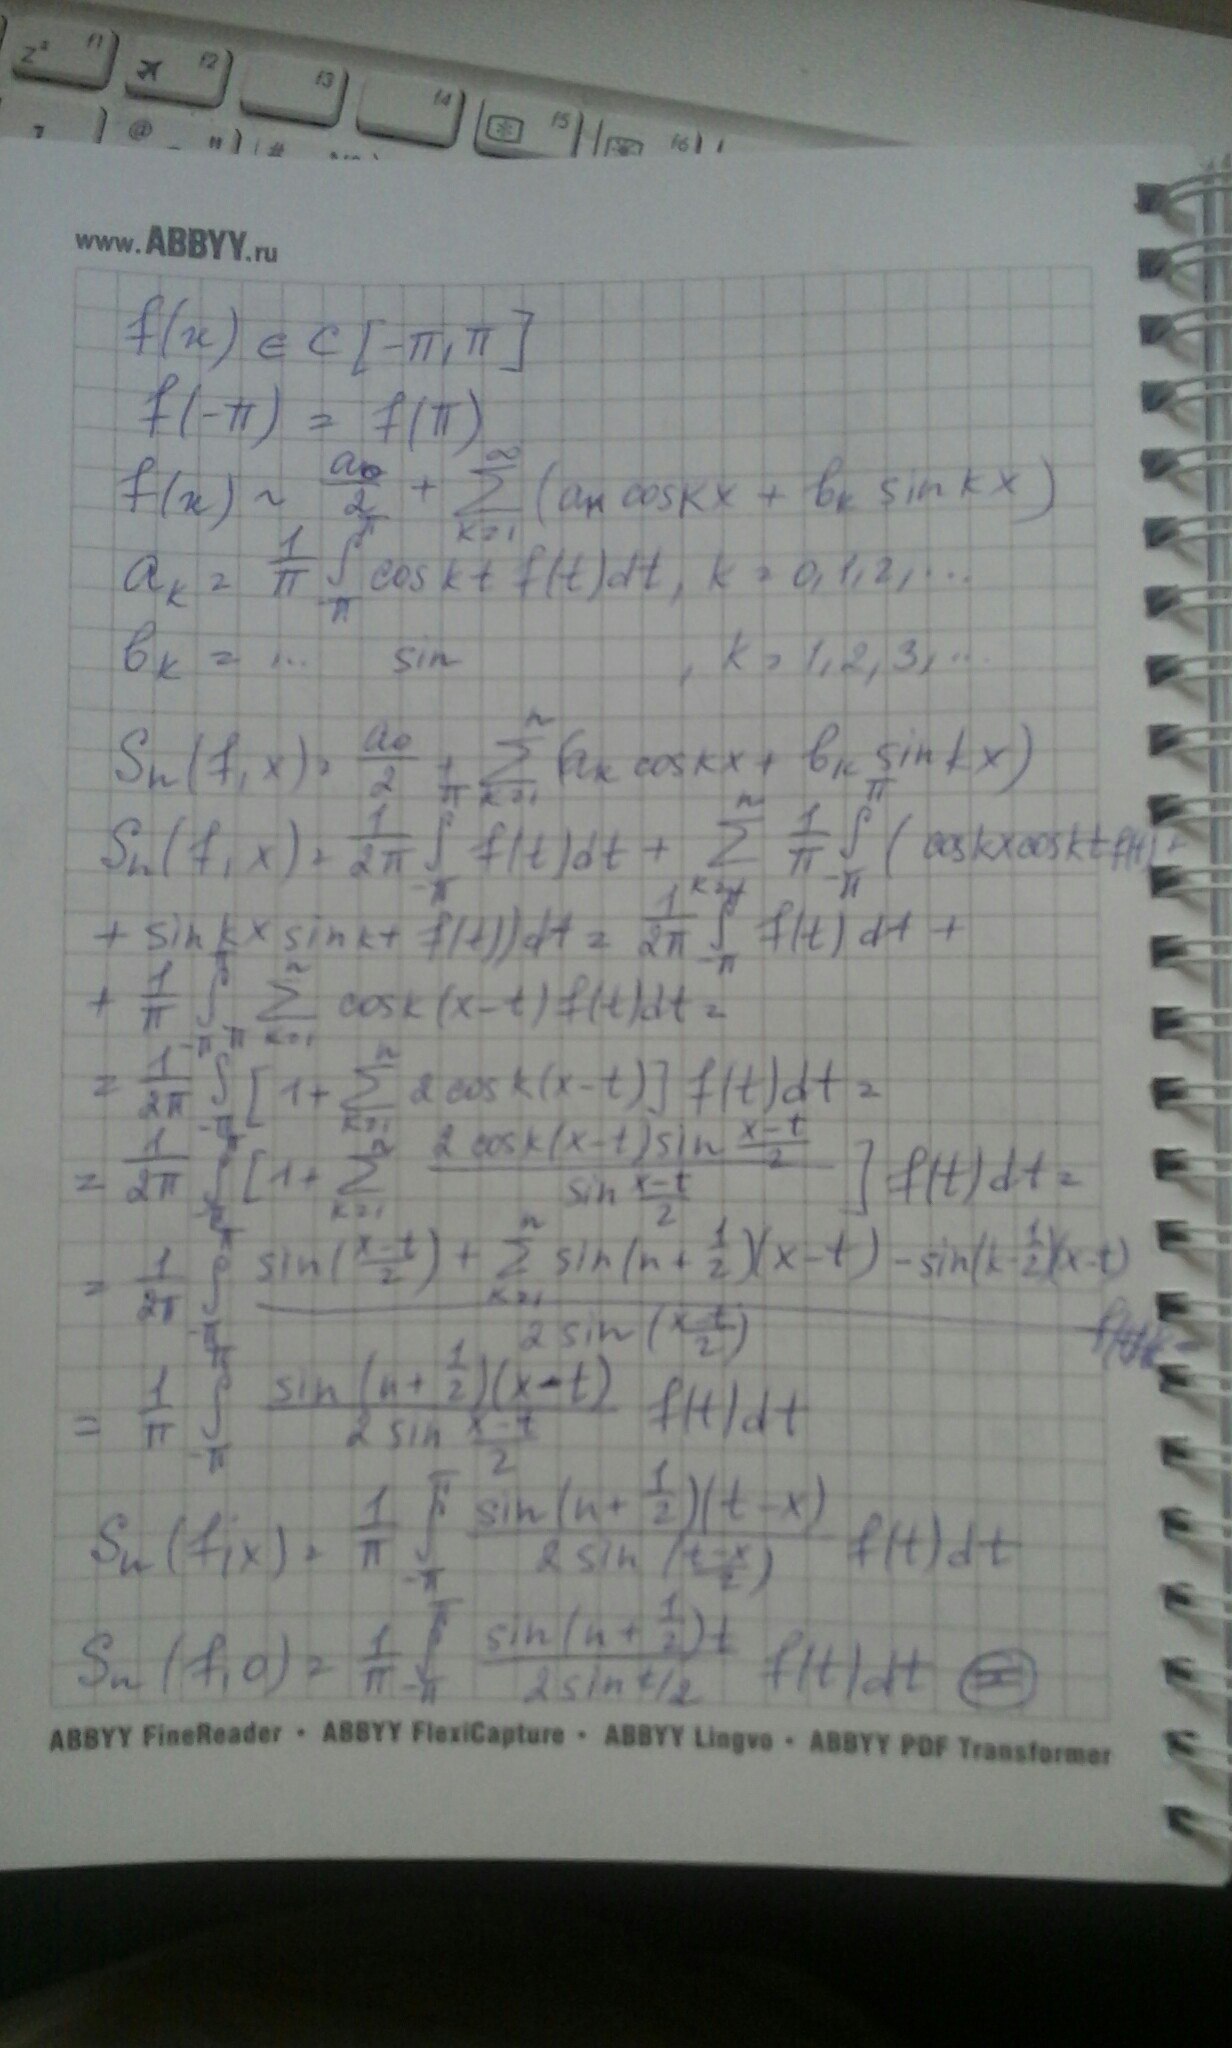 z² 11 π 12 13 14 15 16
@ " #
www.ABBYY.ru
f(x) ∈ C [-π, π]
f(-π) = f(π)
f(x) ~ a₀/2 + ∑_{k=1}^{∞} (aₖ cos kx + bₖ sin kx)
aₖ = 1/π ∫_{-π}^{π} cos kt f(t) dt, k = 0, 1, 2, ...
bₖ = ... sin , k = 1, 2, 3, ...
Sₙ(f, x) = a₀/2 + ∑_{k=1}^{n} (aₖ cos kx + bₖ sin kx)
Sₙ(f, x) = 1/2π ∫_{-π}^{π} f(t) dt + ∑_{k=1}^{n} 1/π ∫_{-π}^{π} (cos kx cos kt f(t) +
+ sin kx sin kt f(t)) dt = 1/2π ∫_{-π}^{π} f(t) dt +
+ 1/π ∫_{-π}^{π} ∑_{k=1}^{n} cos k(x-t) f(t) dt =
= 1/2π ∫_{-π}^{π} [1 + ∑_{k=1}^{n} 2 cos k(x-t)] f(t) dt =
= 1/2π ∫_{-π}^{π} [1 + ∑_{k=1}^{n} (2 cos k(x-t) sin (x-t)/2) / (sin (x-t)/2)] f(t) dt =
= 1/2π ∫_{-π}^{π} (sin((x-t)/2) + ∑_{k=1}^{n} sin(n + 1/2)(x-t) - sin(k - 1/2)(x-t)) / (2 sin((x-t)/2)) f(t) dt =
= 1/π ∫_{-π}^{π} (sin(n + 1/2)(x-t)) / (2 sin (x-t)/2) f(t) dt
Sₙ(f, x) = 1/π ∫_{-π}^{π} (sin(n + 1/2)(t-x)) / (2 sin((t-x)/2)) f(t) dt
Sₙ(f, 0) = 1/π ∫_{-π}^{π} (sin(n + 1/2)t) / (2 sin t/2) f(t) dt =
ABBYY FineReader • ABBYY FlexiCapture • ABBYY Lingvo • ABBYY PDF Transformer